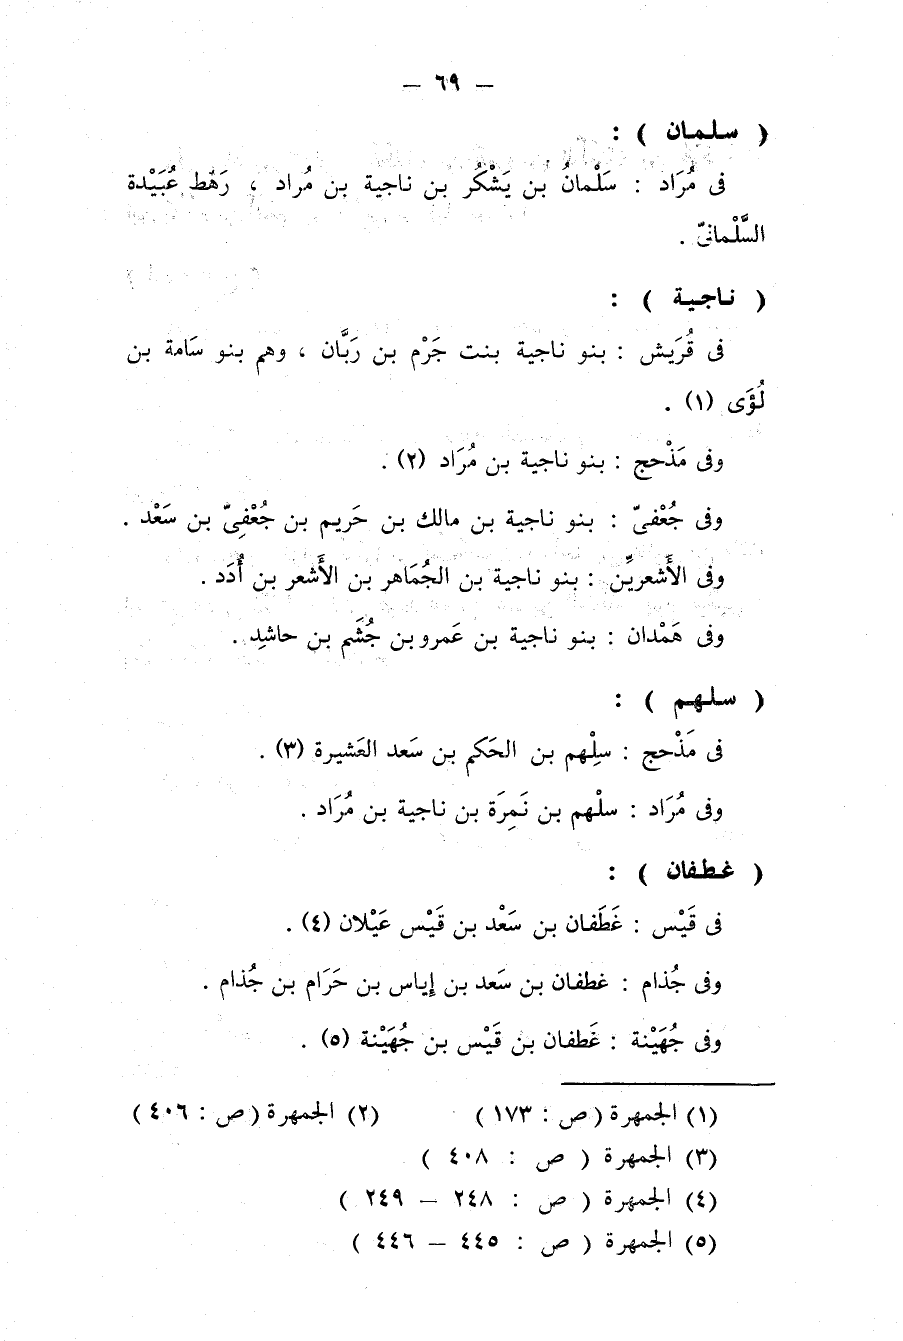 — ٦٩ —
( سلمان ) :
فى مُرَاد : سَلْمانُ بن يَشْكُر بن ناجية بن مُراد ، رَهْط عُبَيْدة
السَّلْمانىّ .
( ناجية ) :
فى قُرَيش : بنو ناجية بنت جَرْم بن رَبَّان ، وهم بنو سَامة بن
لُؤَى (١) .
وفى مَذْحج : بنو ناجية بن مُرَاد (٢) .
وفى جُعْفىّ : بنو ناجية بن مالك بن حَريم بن جُعْفِىّ بن سَعْد .
وفى الأَشعريِّن : بنو ناجية بن الجُمَاهر بن الأَشعر بن أُدَد .
وفى هَمْدان : بنو ناجية بن عَمرو بن جُشَم بن حاشِد .
( سلهم ) :
فى مَذْحج : سِلْهم بن الحَكَم بن سَعد العَشيرة (٣) .
وفى مُرَاد : سلْهم بن نَمِرَة بن ناجية بن مُرَاد .
( غطفان ) :
فى قَيْس : غَطَفان بن سَعْد بن قَيْس عَيْلان (٤) .
وفى جُذام : غطفان بن سَعد بن إياس بن حَرَام بن جُذام .
وفى جُهَيْنة : غَطفان بن قَيْس بن جُهَيْنة (٥) .
(١) الجمهرة ( ص : ١٧٣ ) (٢) الجمهرة ( ص : ٤٠٦ )
(٣) الجمهرة ( ص : ٤٠٨ )
(٤) الجمهرة ( ص : ٢٤٨ — ٢٤٩ )
(٥) الجمهرة ( ص : ٤٤٥ — ٤٤٦ )